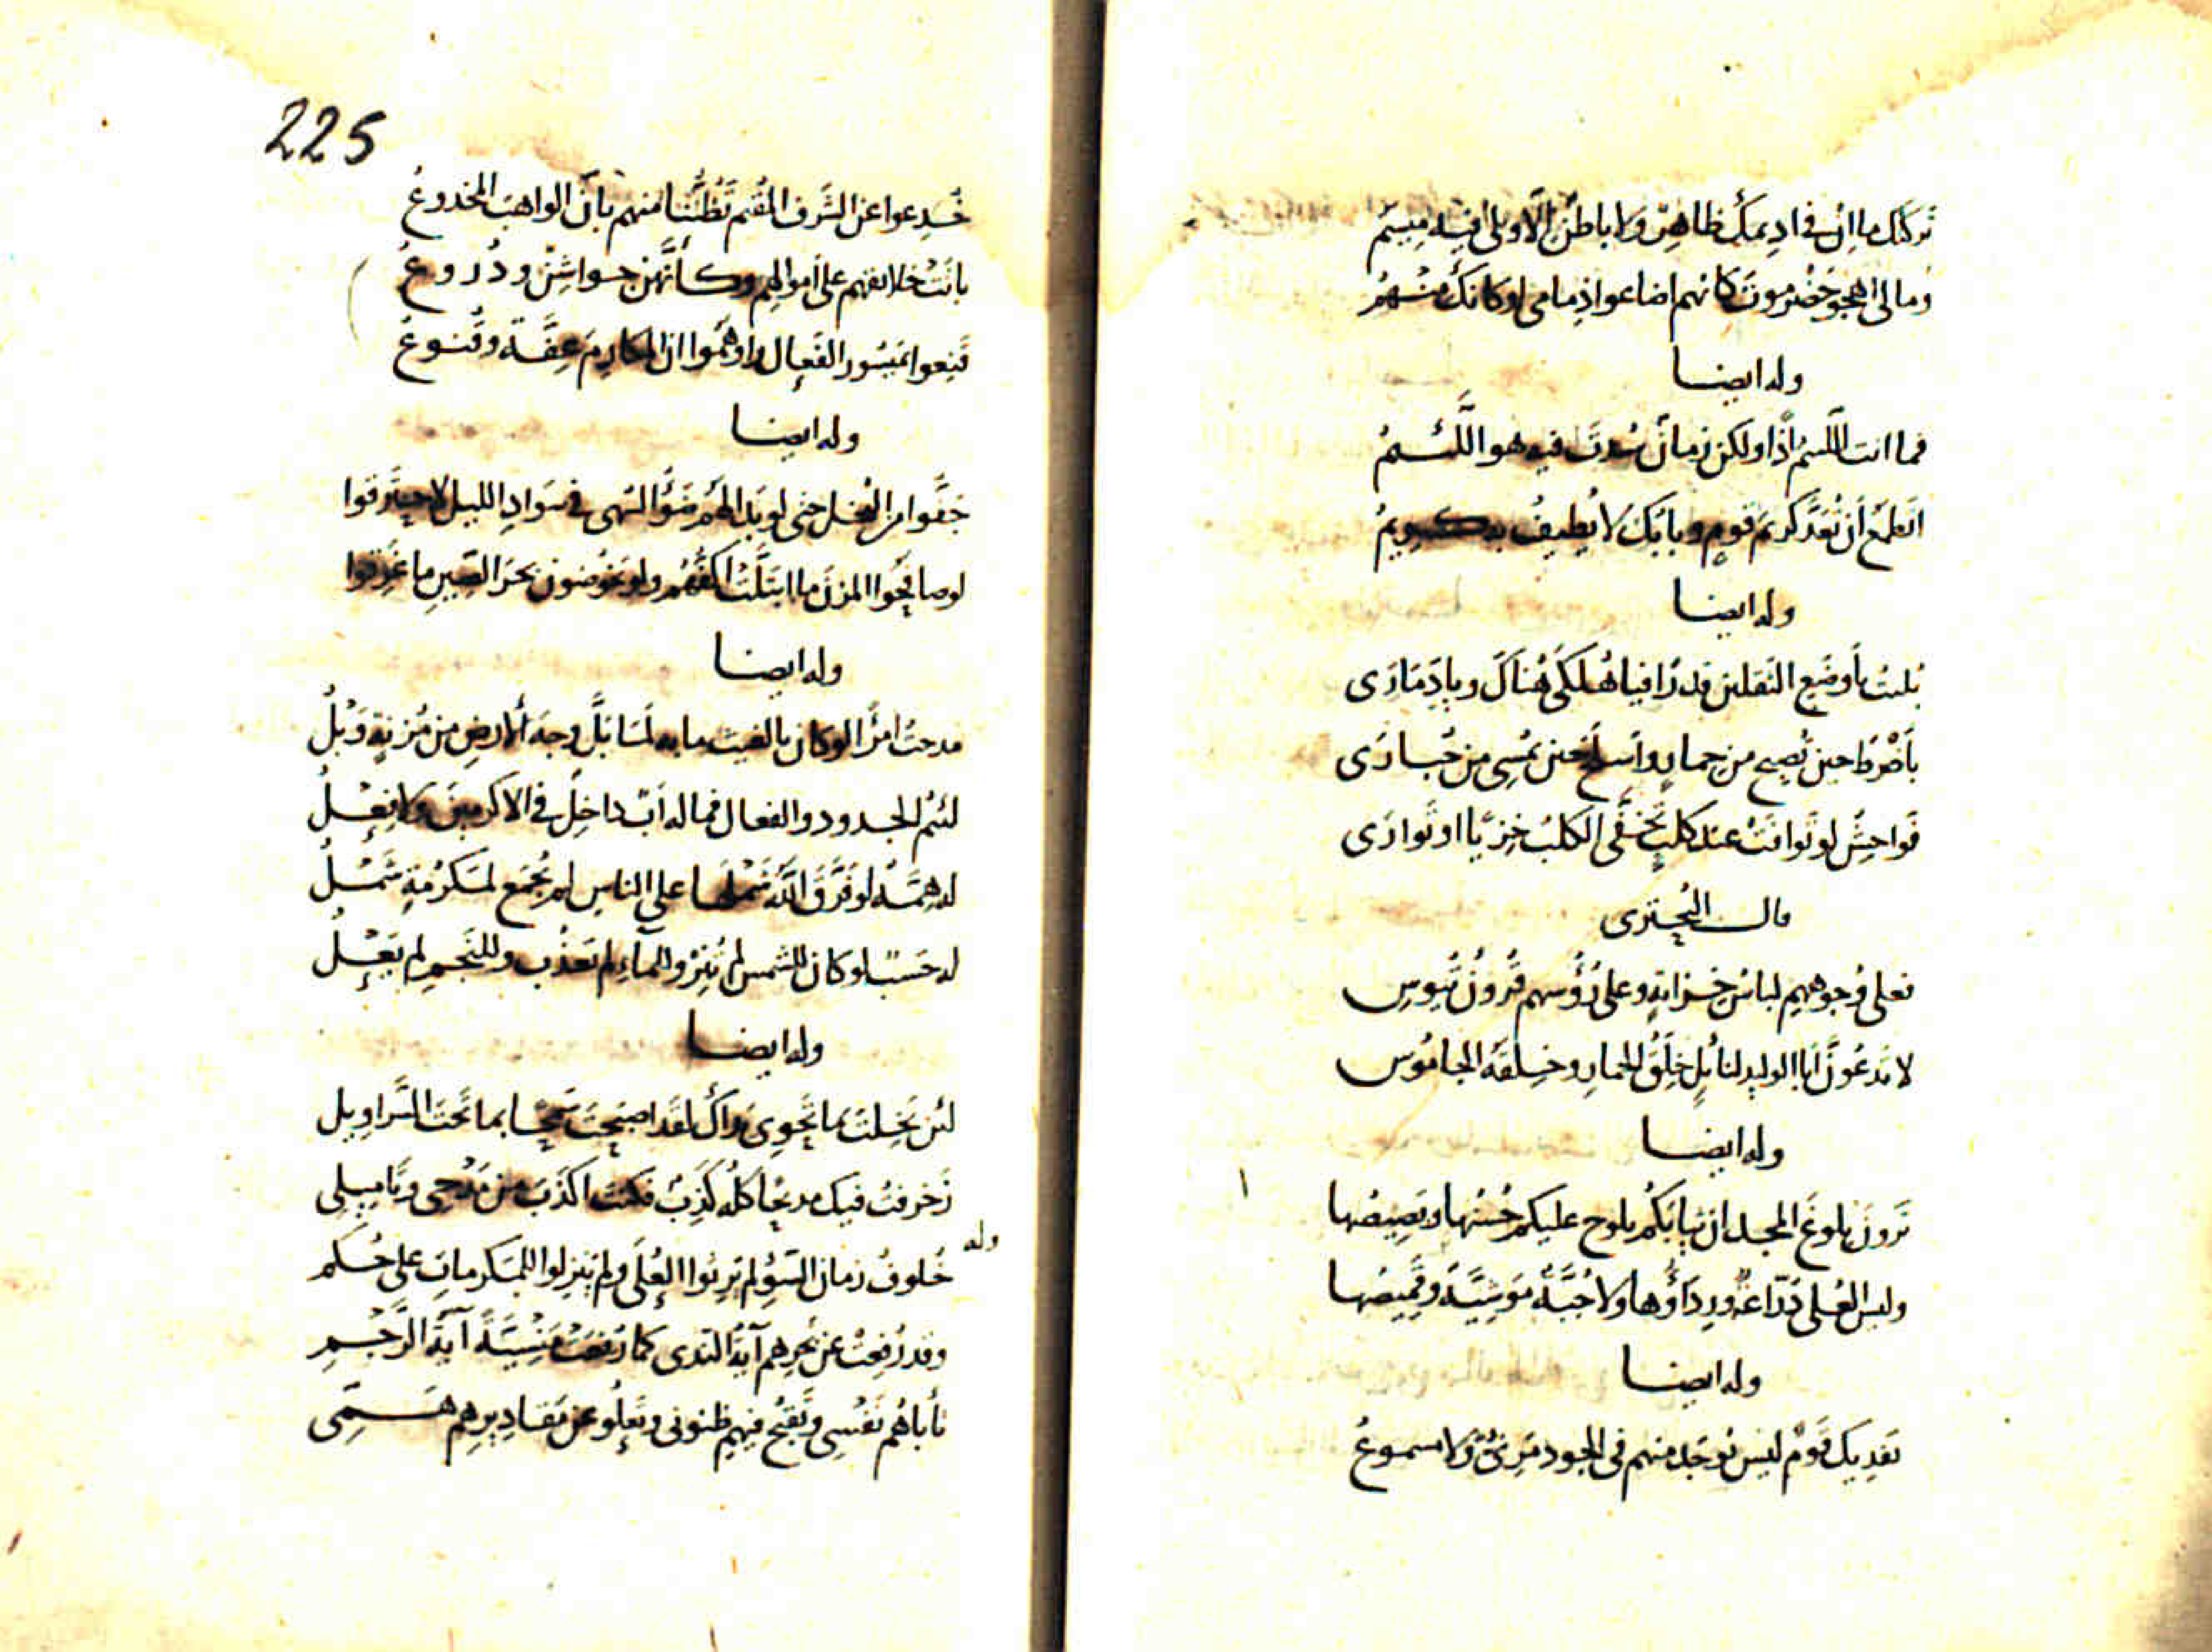 تركتك ما إن في اديمك ظاهر ولا باطن الا ولى فيه ميسم
وما لى اهجو حضرموت كانهم اضاعوا ذمامى او كانك منهم
وله ايضا
فما انت اللئيم اذا ولكن زمان سدت فيه هو اللئيم
اتطمع أن تُعَدَّ كريم قوم وبابك لا يُطِيفُ به كريم
وله ايضا
بُليتُ بأوضع الثقلين قدرًا فيا هُلكى هُناك ويا دَمَارَى
بأضرط حين تُصبح من حمار وأسلح حين تمسى من حُبارَى
فواحش لو توافت عند كلب تخفى الكلب خزيا او توارى
قال البحترى
فعلى وُجوههم لباسُ خزاية وعلى رؤسهم قُرونُ تيوس
لا تدعون أبا الوليد لنائل خلق الحمار وخلقه الجاموس
وله ايضا
ترون بلوغ المجد ان ثيابكم يلوح عليكم حُسنها وبصيصها
وليس العُلى دُرّاعة ورداؤها ولا جُبّة موشيّة وقميصها
وله ايضا
تفديك قوم ليس توجد منهم فى الجود مرئى ولا مسموع
225
خُدِعوا عن الشرف المقيم تظننا منهم بأن الواهب المخدوع
باتت خلائقهم على أموالهم وكأنهن جواشن ودروع
قنعوا بميسور الفعال واوهموا ان المكارم عفة وقنوع
وله ايضا
جفوا من البخل حتى لو بدا لهم ضوُّ السُهى فى سواد الليل لاحترقوا
لو صافحوا المزن ما ابتلت اكفهم ولو يخوضون بحر الصين ما غرقوا
وله ايضا
مدحتُ امرًأ لو كان بالغيث ما به لما بلّ وجه ألارض من مزنة وبلُ
لئيم الجدود والفعال فما له أب داخل فى الاكرمين ولا فعلُ
له همة لو فرّق الله شملها على الناس لم يُجمع لمكرُمة شملُ
له حسبٌ لو كان للشمس لم تنر وللماء لم يعذب وللنجم لم يعلُ
وله ايضا
لئن بخلت بما تحوى يداك لقد اصبحت سمحا بما تحت السراويل
زخرفت فيك مديحًا كله كذب فكنت اكذب من مدحى وتاميلى
وله
خُلوفُ زمان السوء لم يرثوا العُلى ولم ينزلوا للمكرمات على حكم
وقد رُفعت عن بحرهم آية الندى كما رفعت منسيّة آية الرجم
تأباهُم نفسى وتقبح فيهم ظنونى وتعلو عن مقاديرهم هممى